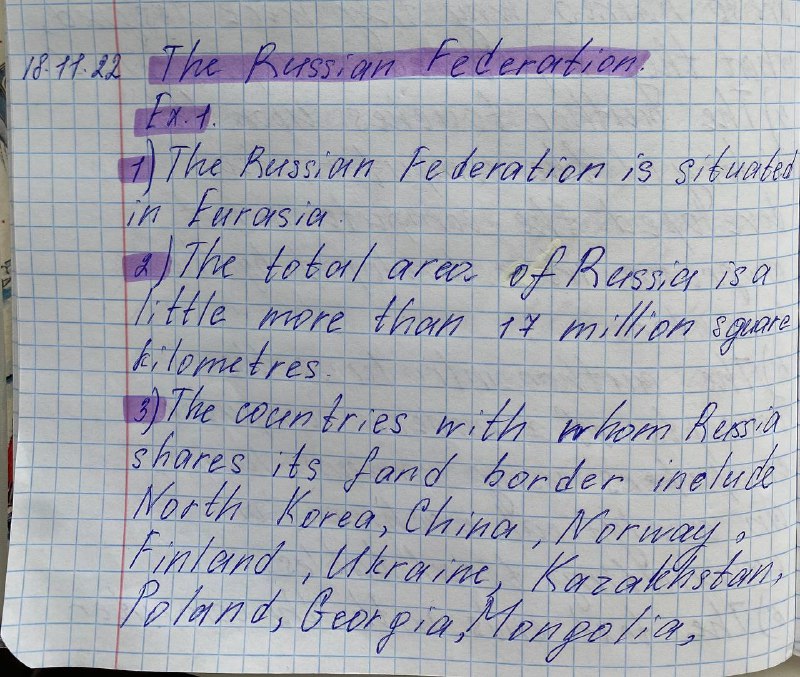 18.11.22 The Russian Federation.
Ex. 1.
1) The Russian Federation is situated
in Eurasia.
2) The total area of Russia is a
little more than 17 million square
kilometres.
3) The countries with whom Russia
shares its land border include
North Korea, China, Norway,
Finland, Ukraine, Kazakhstan,
Poland, Georgia, Mongolia,